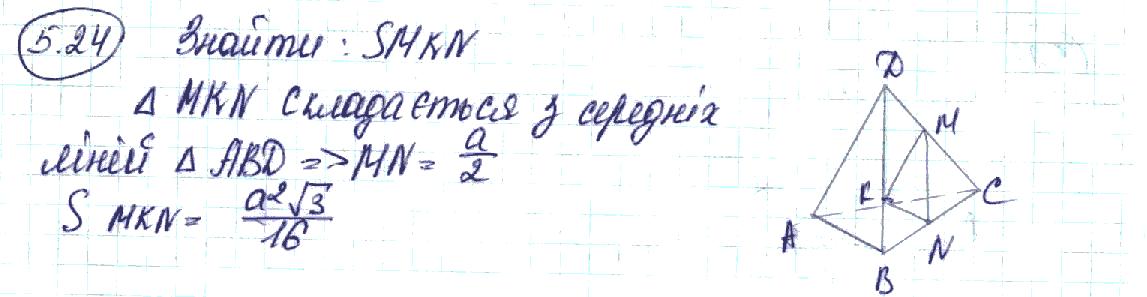 5.24 Знайти: SMKN
△ MKN складається з середніх
ліній △ ABD => MN = a/2
S MKN = a²√3/16
D
M
K
C
A
N
B